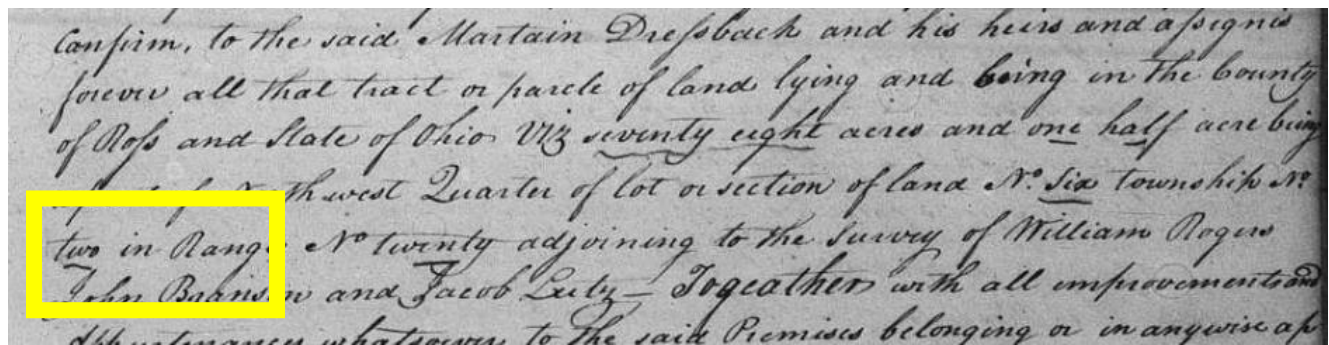 Confirm, to the said Martain Dressback and his heirs and assigns
forever all that tract or parcle of land lying and being in the County
of Ross and State of Ohio Viz seventy eight acres and one half acre being
west Quarter of lot or section of land No. Six township No.
two in Range No twenty adjoining to the survey of William Rogers
John Branson and Jacob Lutz – Togeather with all improvements and
appurtenances whatsoever to the said Premises belonging or in anywise ap